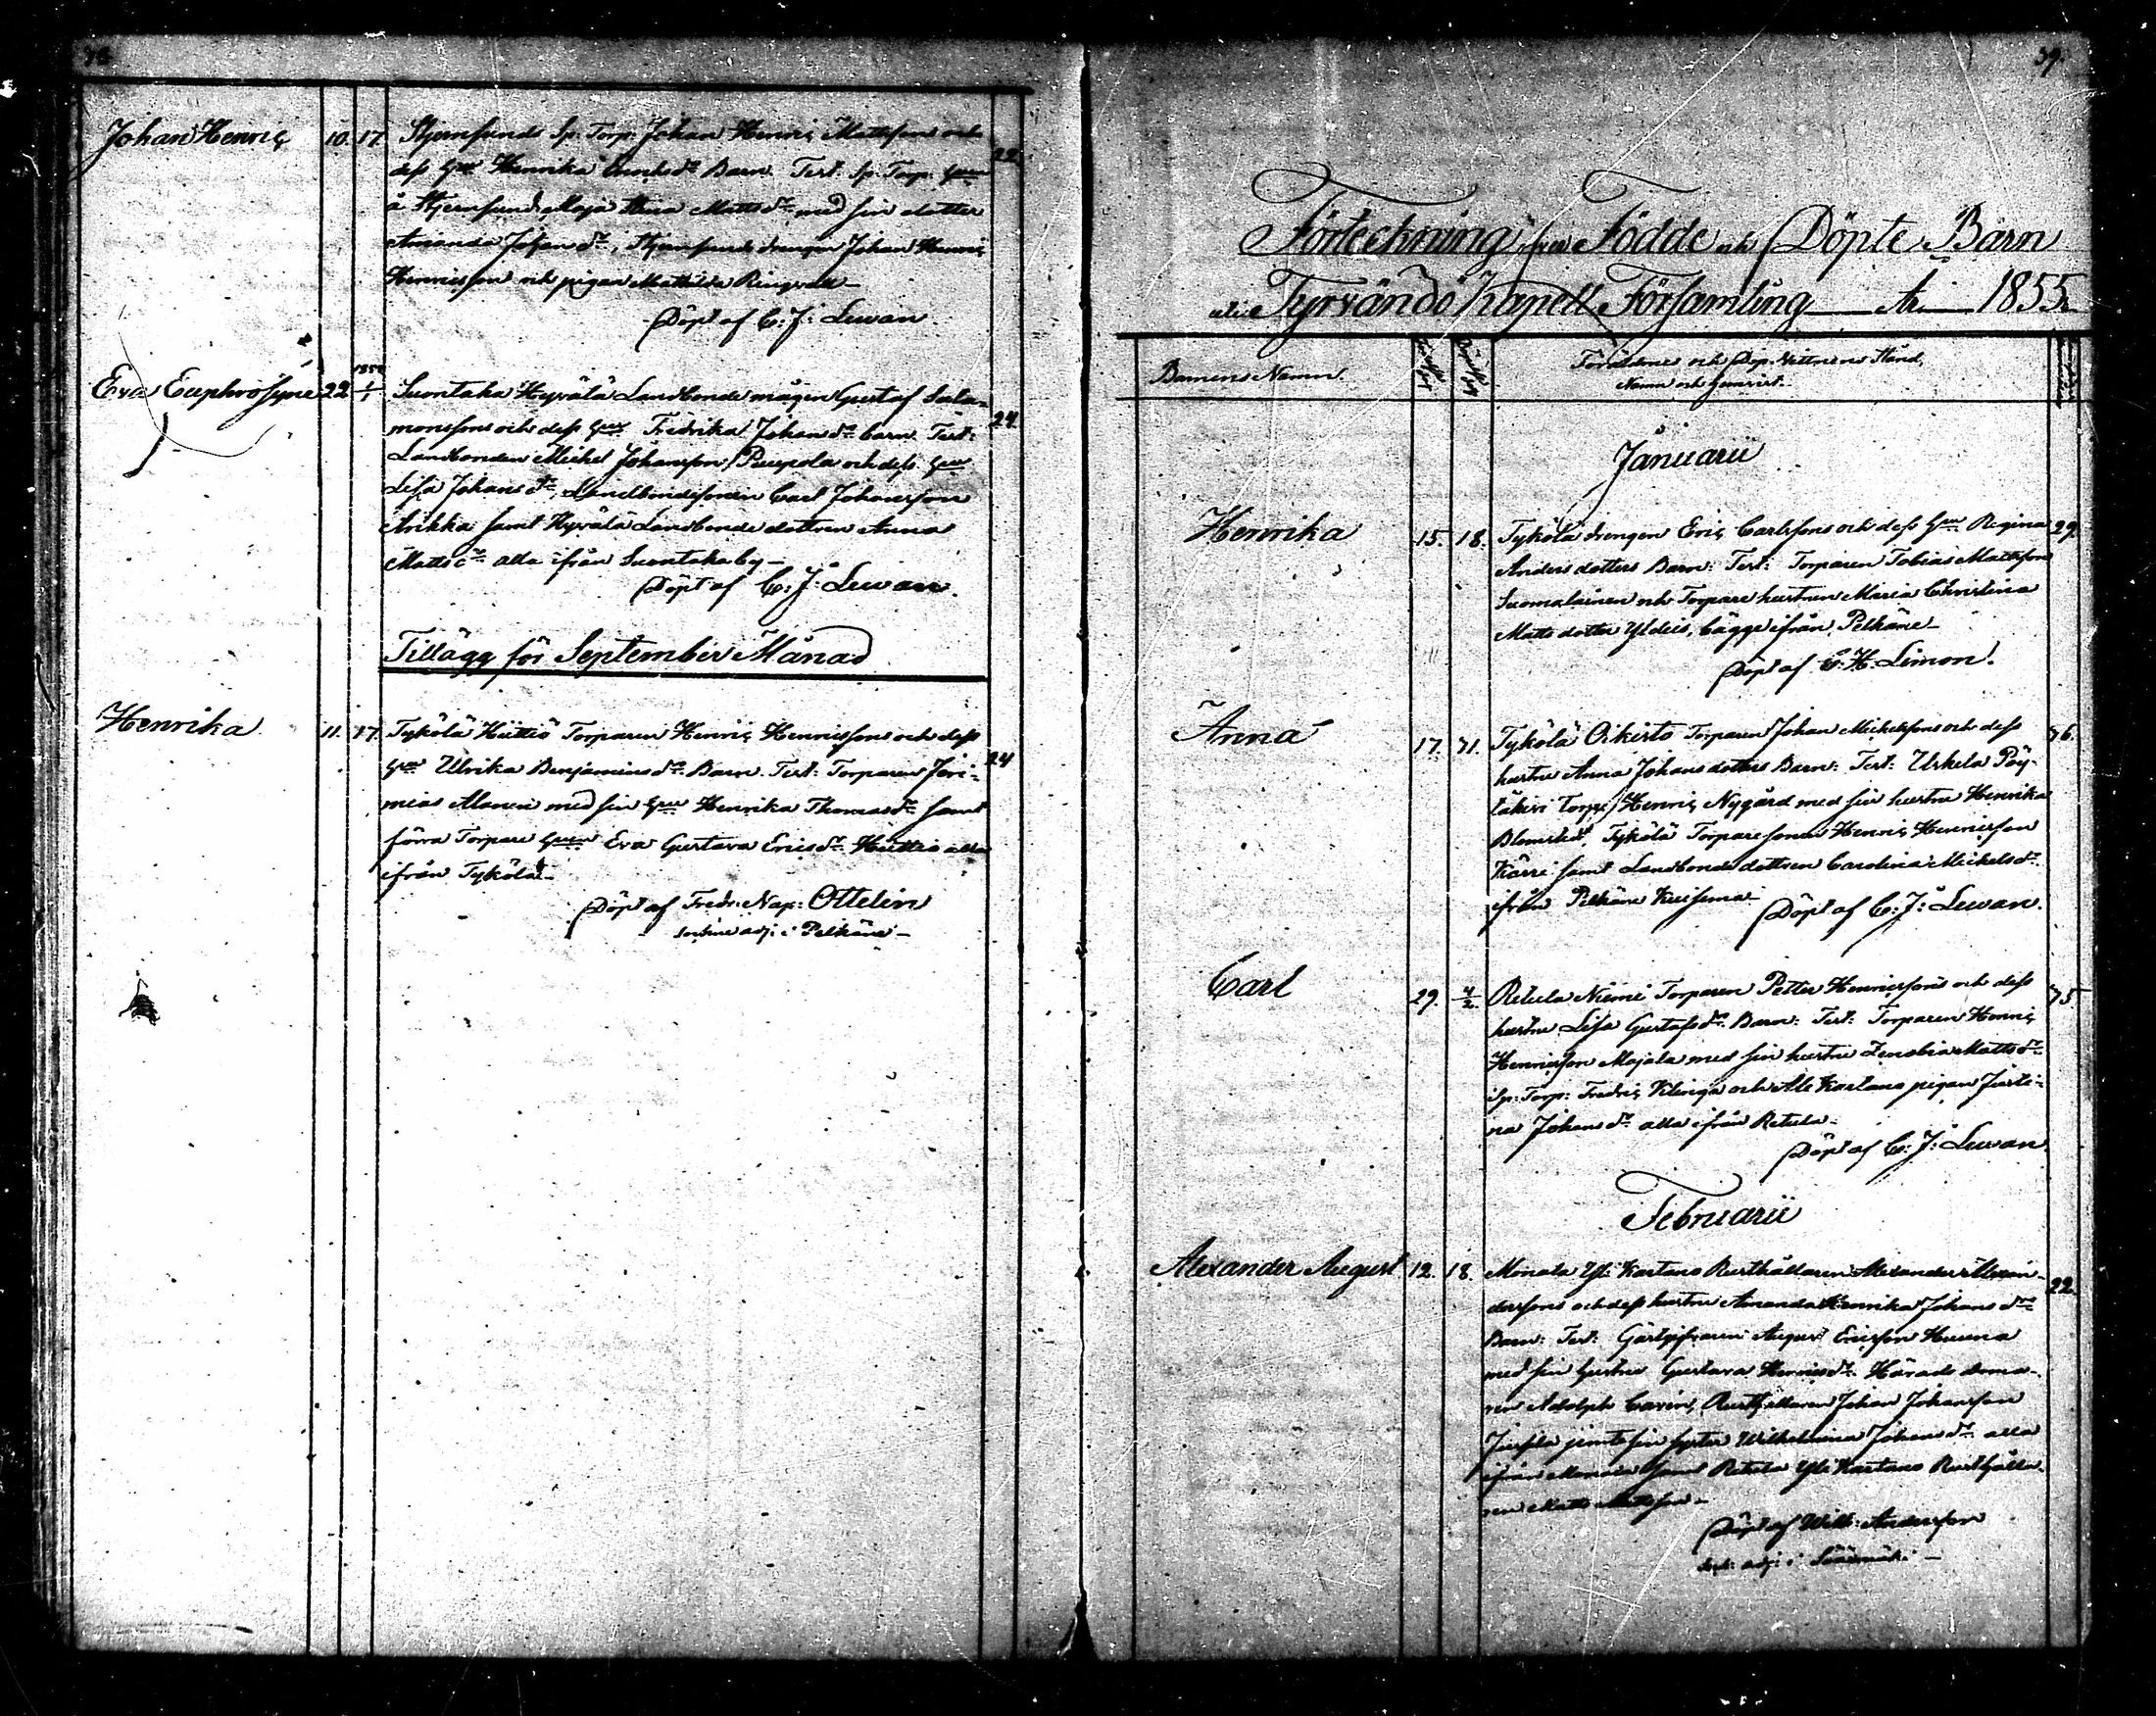 Johan Henric 10. 17. Stjernsunds Sp. Torp. Johan Henric Mattssons och 22
dess Hru Henrika Barn. Test. Sp. Torp. Hrun
å Stjernsund Maja Stina Matts dr med sin dotter
Amanda Johans dr, Stjernsunds drängen Johan Henric
Henricsson och pigan Mathilda Ringvall
Döpt af C. J: Lewan.
Eva Euphrosyne 22 1855 1/1 Suontaka Hyvälä Landbonde mågen Gustaf Salo= 24
monssons och dess Hru Fredrika Johans dr barn. Test:
Landbonden Michel Johansson Puupola och dess Hru
Lisa Johans dr, Landbondesonen Carl Johansson
Arikka samt Hyvälä Landbonde dottren Anna
Matts dr alla ifrån Suontaka by
Döpt af C: J: Lewan.
Tillägg för September Månad
Henrika 11. 17. Tykölä Hüttiö Torparen Henric Henricssons och dess 24
Hru Ulrika Benjamins dr Barn. Test: Torparen Jere-
mias Manen med sin Hru Henrika Thomas dr samt
förra Torpare Hrun Eva Gustava Erics dr Hüttiö alla
ifrån Tykölä
Döpt af Fredr: Nap: Ottelin
adj: i Pelkäne
39.
Förteckning öfver Födde och Döpte Barn
uti Tyrvändö Kapell Församling År 1855.
Barnens Namn. Föräldrarnes och Dop-Vittnens Stånd,
Namn och hemvist.
Januarii
Henrika 15. 18. Tykölä drengen Eric Carlssons och dess Hru Regina 29
Anders dotters Barn: Test: Torparen Tobias Mattsson
Suomalainen och Torpare hustrun Maria Christina
Matts dotter Yldeis, bägge ifrån Pelkäne
Döpt af C. H. Limon.
Anna 17. 21. Tykölä Oikisto Torparen Johan Michelssons och dess 36.
hustru Anna Johans dotters Barn: Test: Uskela Pöy-
täkivi Torp: Henric Nygård med sin hustru Henrika
Blomsted, Tykölä Torparesonen Henric Henricsson
Kärri samt Landbonde dottren Carolina Michels dr
ifrån Pelkäne Kuisema
Döpt af C: J: Lewan.
Carl 29. 4/2 Retula Niemi Torparen Petter Henricssons och dess 35
hustru Lisa Gustafs dr Barn: Test: Torparen Henric
Henricsson Majala med sin hustru Zenobia Matts dr
Sp: Torp: Fredric Vilenga och Ale Kartano pigan Justi-
na Johans dr alla ifrån Retula
Döpt af C: J: Lewan
Februarii
Alexander August 12. 18. Monala Yli Kartano Rusthållaren Alexander Alexan- 22.
derssons och dess hustru Amanda Henrika Johans dr
Barn: Test: Gästgifvaren August Ericsson Huuna
med sin hustru Gustava Henrics dr Härads doma-
ren Adolph Cavén, Rusthållaren Johan Johansson
Jussila jemte sin syster Wilhelmina Johans dr alla
ifrån Monala samt Retula Yli Kartano Rusthålla-
ren Matts Mattsson
Döpt af Wilh: Andersson
adj: i Sääksmäki